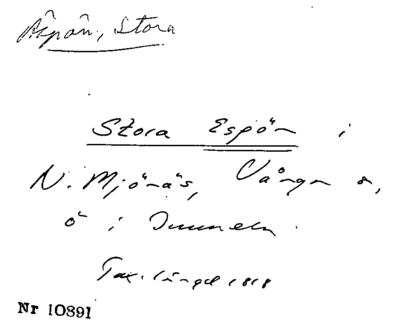 Äspön, Stora
Stora Espön i
N. Mjönäs, Vånga s,
ö i Immeln.
Tax. längd 1818
Nr 10891